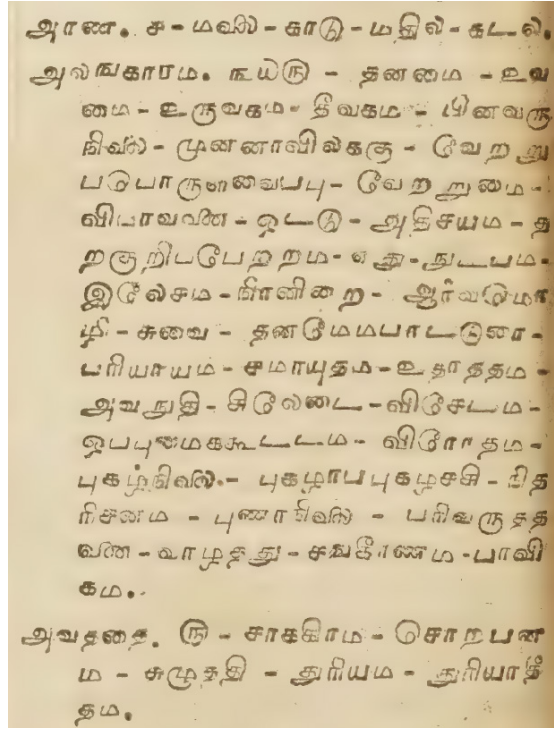 அரண. ௪ - மலை - காடு - மதில - கடல.
அலஙகாரம. ௩௰௫ - தனமை - உவ
மை - உருவகம - தீவகம - பினவரு
நிலை - முனனாவிலககு - வேறறு
படபொருளவைபபு - வேறறுமை -
விபாவனை - ஒடடு - அதிசயம - த
றகுறிபபேறறம - ஏது - நுடபம -
இலேசம - நிரனிறை - ஆர்வமொ
ழி - சுவை - தனமேமபாடடுரை -
பரியாயம - சமாயுதம - உதாததம -
அவநுதி - சிலேடை - விசேடம -
ஒபபுமைககூடடம - விரோதம -
புகழ்நிலை - புகழாபபுகழசசி - நித
ரிசனம - புணரநிலை - பரிவருதத
னை - வாழதது - சஙகீரணம - பாவி
கம.
அவததை. ௫ - சாககிரம - சொறபன
ம - சுழுததி - துரியம - துரியாதீ
தம.